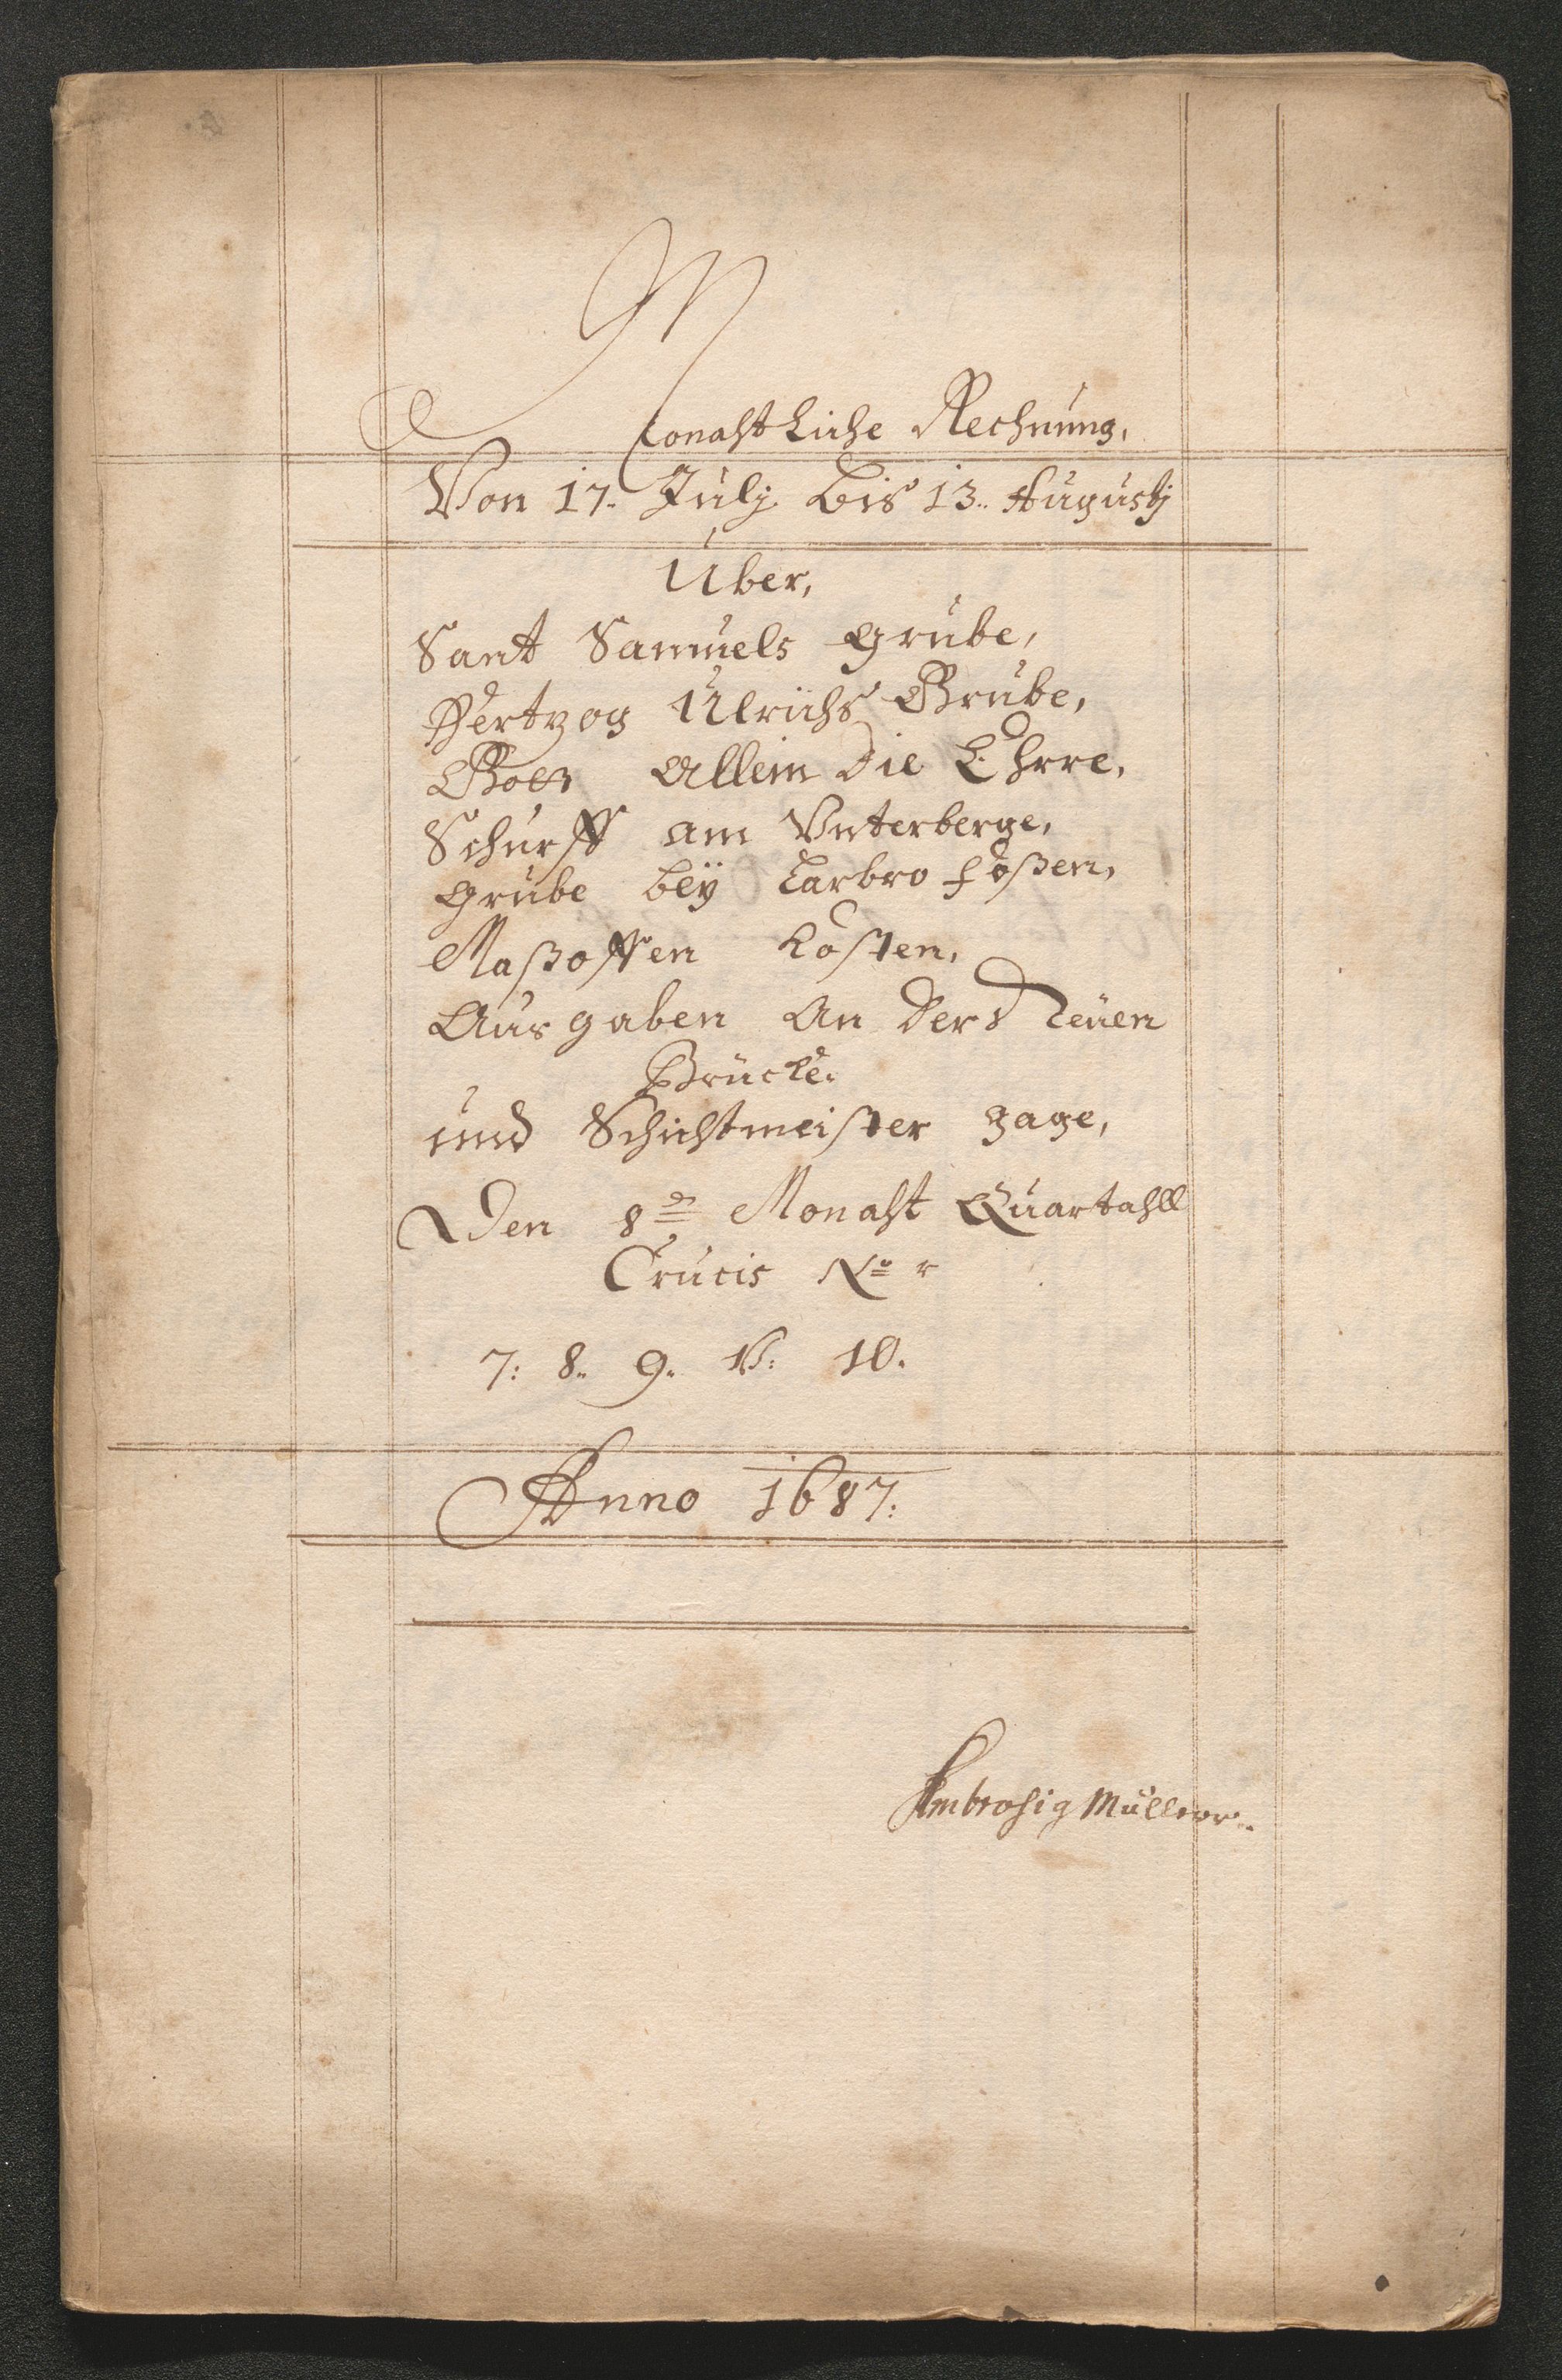 Monahtliche Rechnung,
Von 17. Julij bis 13. Augustj
Über,
Sant Samuels Grube,
Hertzog Ulrichs Grube,
Gott Allein Die Ehrre,
Schurff am Unterberge,
Grube beÿ Labro foßen,
Maßoffen Kosten,
Ausgaben An Der Neuen
Brücke.
und Schichtmeister gage,
Den 8n Monaht Quartahll
Crucis No
7: 8. 9. V: 10.
Anno 1687:
Ambrosig Müller